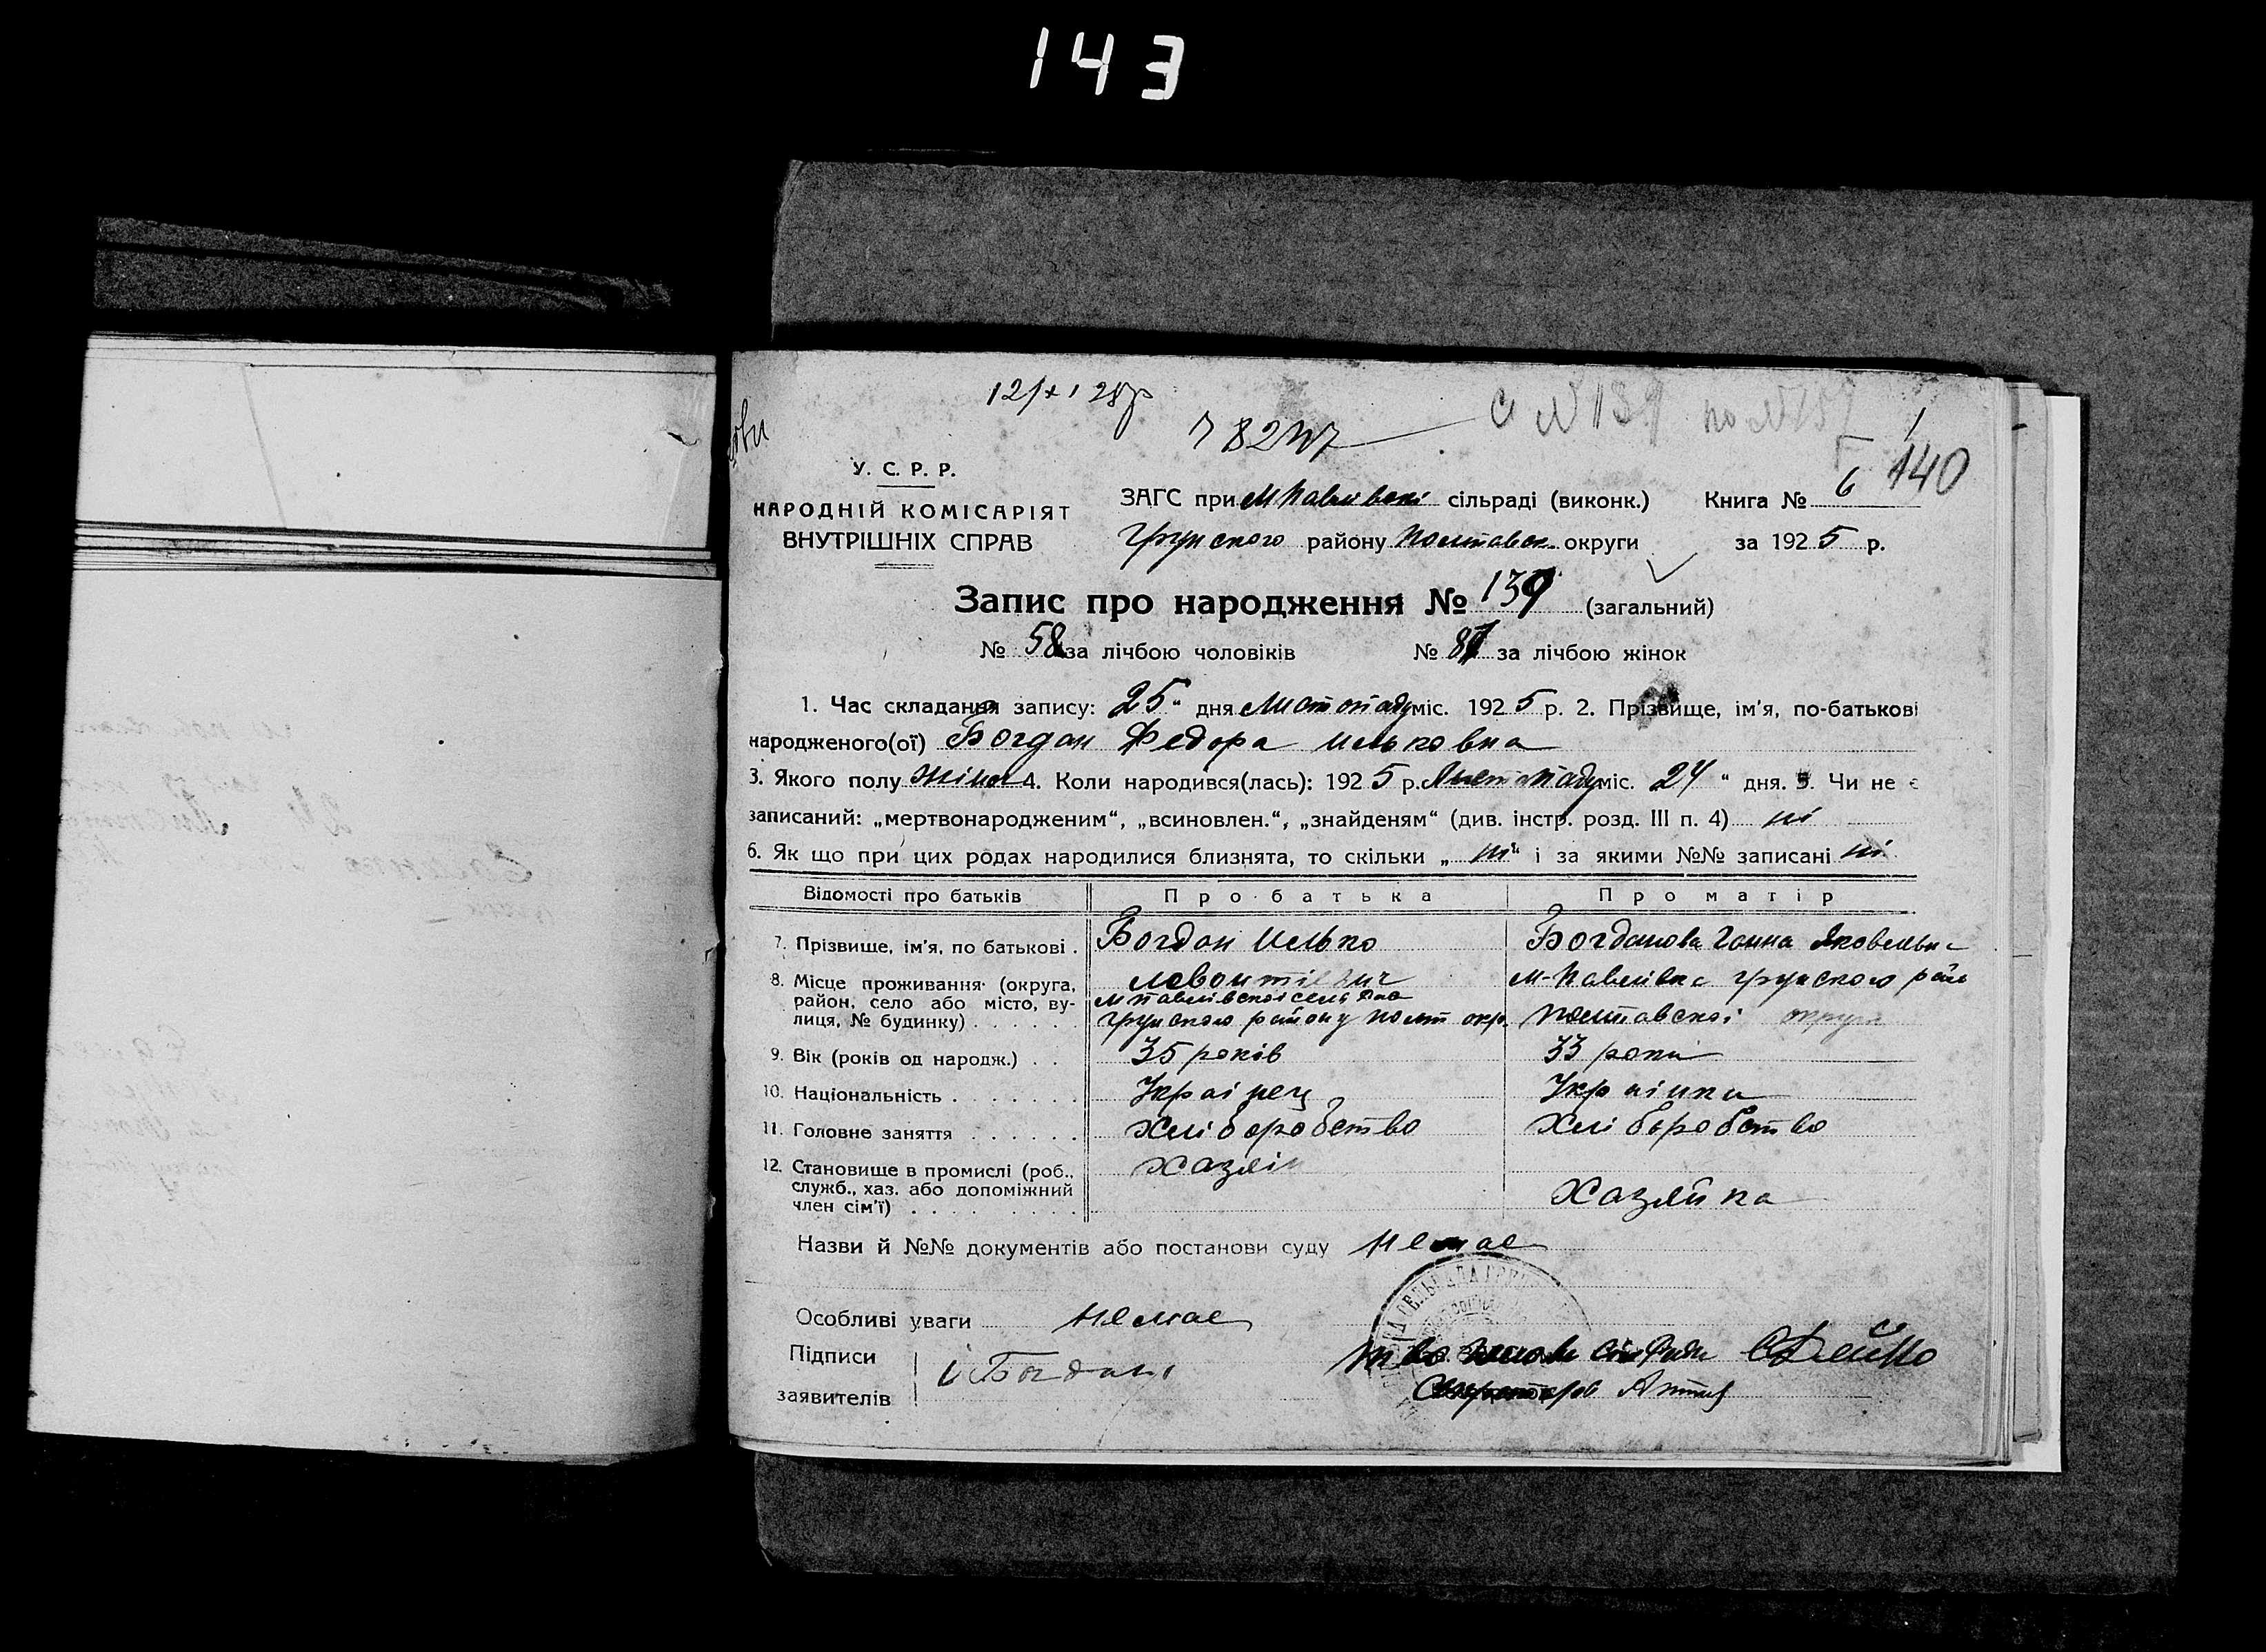 143
с №139 по №157
140
У. С. Р. Р.
НАРОДНІЙ КОМІСАРІЯТ
ВНУТРІШНІХ СПРАВ
ЗАГС при М Павлівскі сільраді (виконк.) Книга № 6
Грунского району Полтавск. округи за 1925 р.
Запис про народження № 139 (загальний)
№ 58 за лічбою чоловіків № 81 за лічбою жінок
1. Час складання запису: 25 " дня Листопаду міс. 1925 р. 2. Прізвище, ім'я, по-батькові
народженого(ої) Богдан Федора Ильковна
3. Якого полу жіноч 4. Коли народився(лась): 1925 р. Листопаду міс. 24 " дня. 5. Чи не є
записаний: „мертвонародженим", „всиновлен.", „знайденям" (див. інстр. розд. III п. 4) ні
6. Як що при цих родах народилися близнята, то скільки „ ні " і за якими №№ записані ні
Відомості про батьків Про батька Про матір
7. Прізвище, ім'я, по батькові . Богдан Илько Богданова Ганна Яковльвна
8. Місце проживання (округа, Левонтієвич М-Павлівка Грунского рай
район, село або місто, ву- М Павлівскої
лиця, № будинку) . . . . . . Грунского району Полт окр. Полтавскої округи
9. Вік (років од народж.) . . 35 років 33 роки
10. Національність . . . . . . . Українец Українка
11. Головне заняття . . . . . . Хліборобство Хліборобство
12. Становище в промислі (роб., Хазяін
служб., хаз. або допоміжний Хазяйка
член сім'ї) . . . . . . . . .
Назви й №№ документів або постанови суду немає
Особливі уваги немає
Підписи І Богдан
заявителів